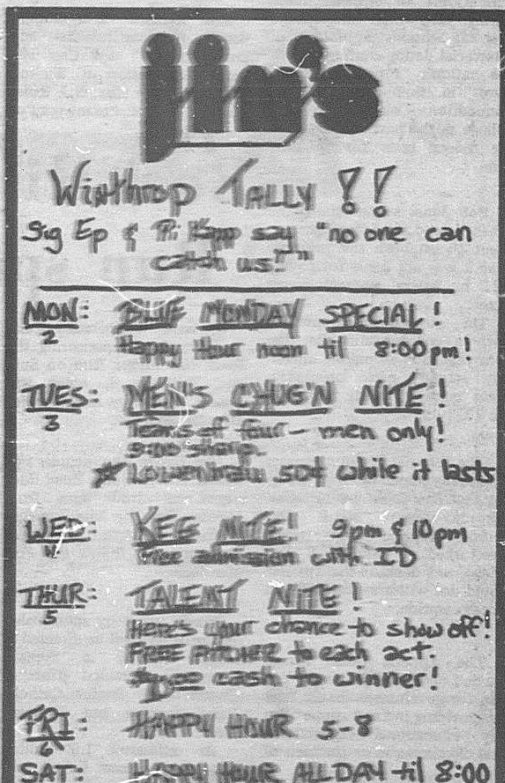 jim's
Winthrop TALLY !!
Sig Ep & Pi Kapp say "no one can
catch us!"
MON: BLUE MONDAY SPECIAL!
2 Happy Hour noon til 8:00pm!
TUES: MEN'S CHUG'N NITE!
3 Teams of four - men only!
9:00 sharp.
☆ Lowenbrau 50¢ while it lasts
WED: KEG NITE! 9pm & 10pm
4 free admission with ID
THUR: TALENT NITE!
5 Here's your chance to show off!
FREE PITCHER to each act.
cash to winner!
FRI: HAPPY HOUR 5-8
6
SAT: HAPPY HOUR ALL DAY til 8:00